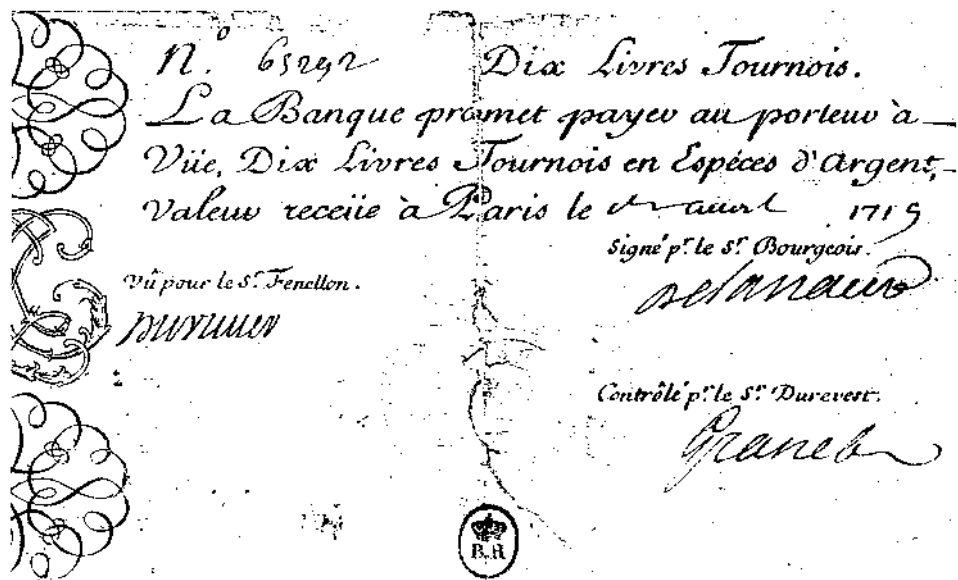 N.º 65292 Dix Livres Tournois.
La Banque promet payer au porteur à
Vüe, Dix Livres Tournois en Espéces d'Argent,
valeur receüe à Paris le avril 1719
Signé p.r le S.r Bourgeois.
Vû pour le S.r Fenellon.
Contrôlé p.r le S.r Durevest.
Granet
B.R